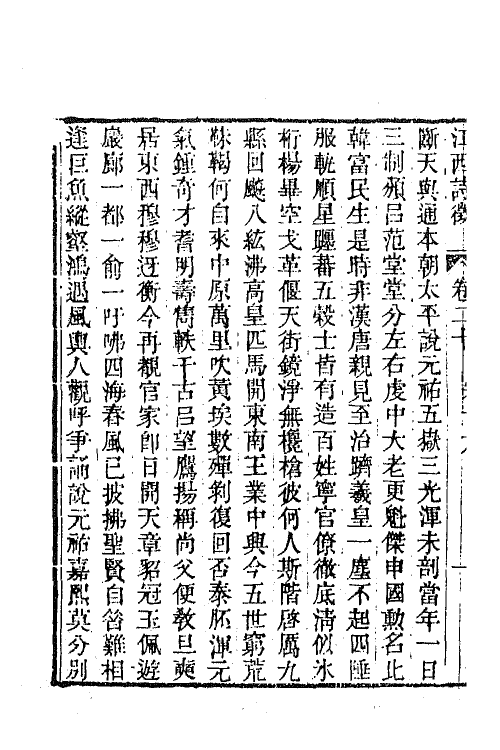 江西詩徵 卷二十
斷天與通本朝太平說元祐五嶽三光渾未剖當年一日
三制頻呂范堂堂分左右虔中大老更魁傑申國勳名比
韓富民生是時非漢唐親見至治躋羲皇一塵不起四陲
服軌順星躔蕃五穀士皆有造百姓寧官僚徹底清似冰
桁楊畢空戈革偃天街鏡淨無欃槍彼何人斯階啓厲九
縣回飈八紘沸高皇匹馬開東南王業中興今五世窮荒
靺鞨何自來中原萬里吹黃埃數殫剝復回否泰胚渾元
氣鍾奇才耆明壽雋軼千古呂望鷹揚稱尚父便敎旦奭
居東西穆穆迓衡今再覩官家卽日開天章貂冠玉佩遊
巖廊一都一俞一吁咈四海春風已披拂聖賢自昔難相
逢巨魚縱壑鴻遇風輿人觀呼爭誦說元祐嘉熙莫分別